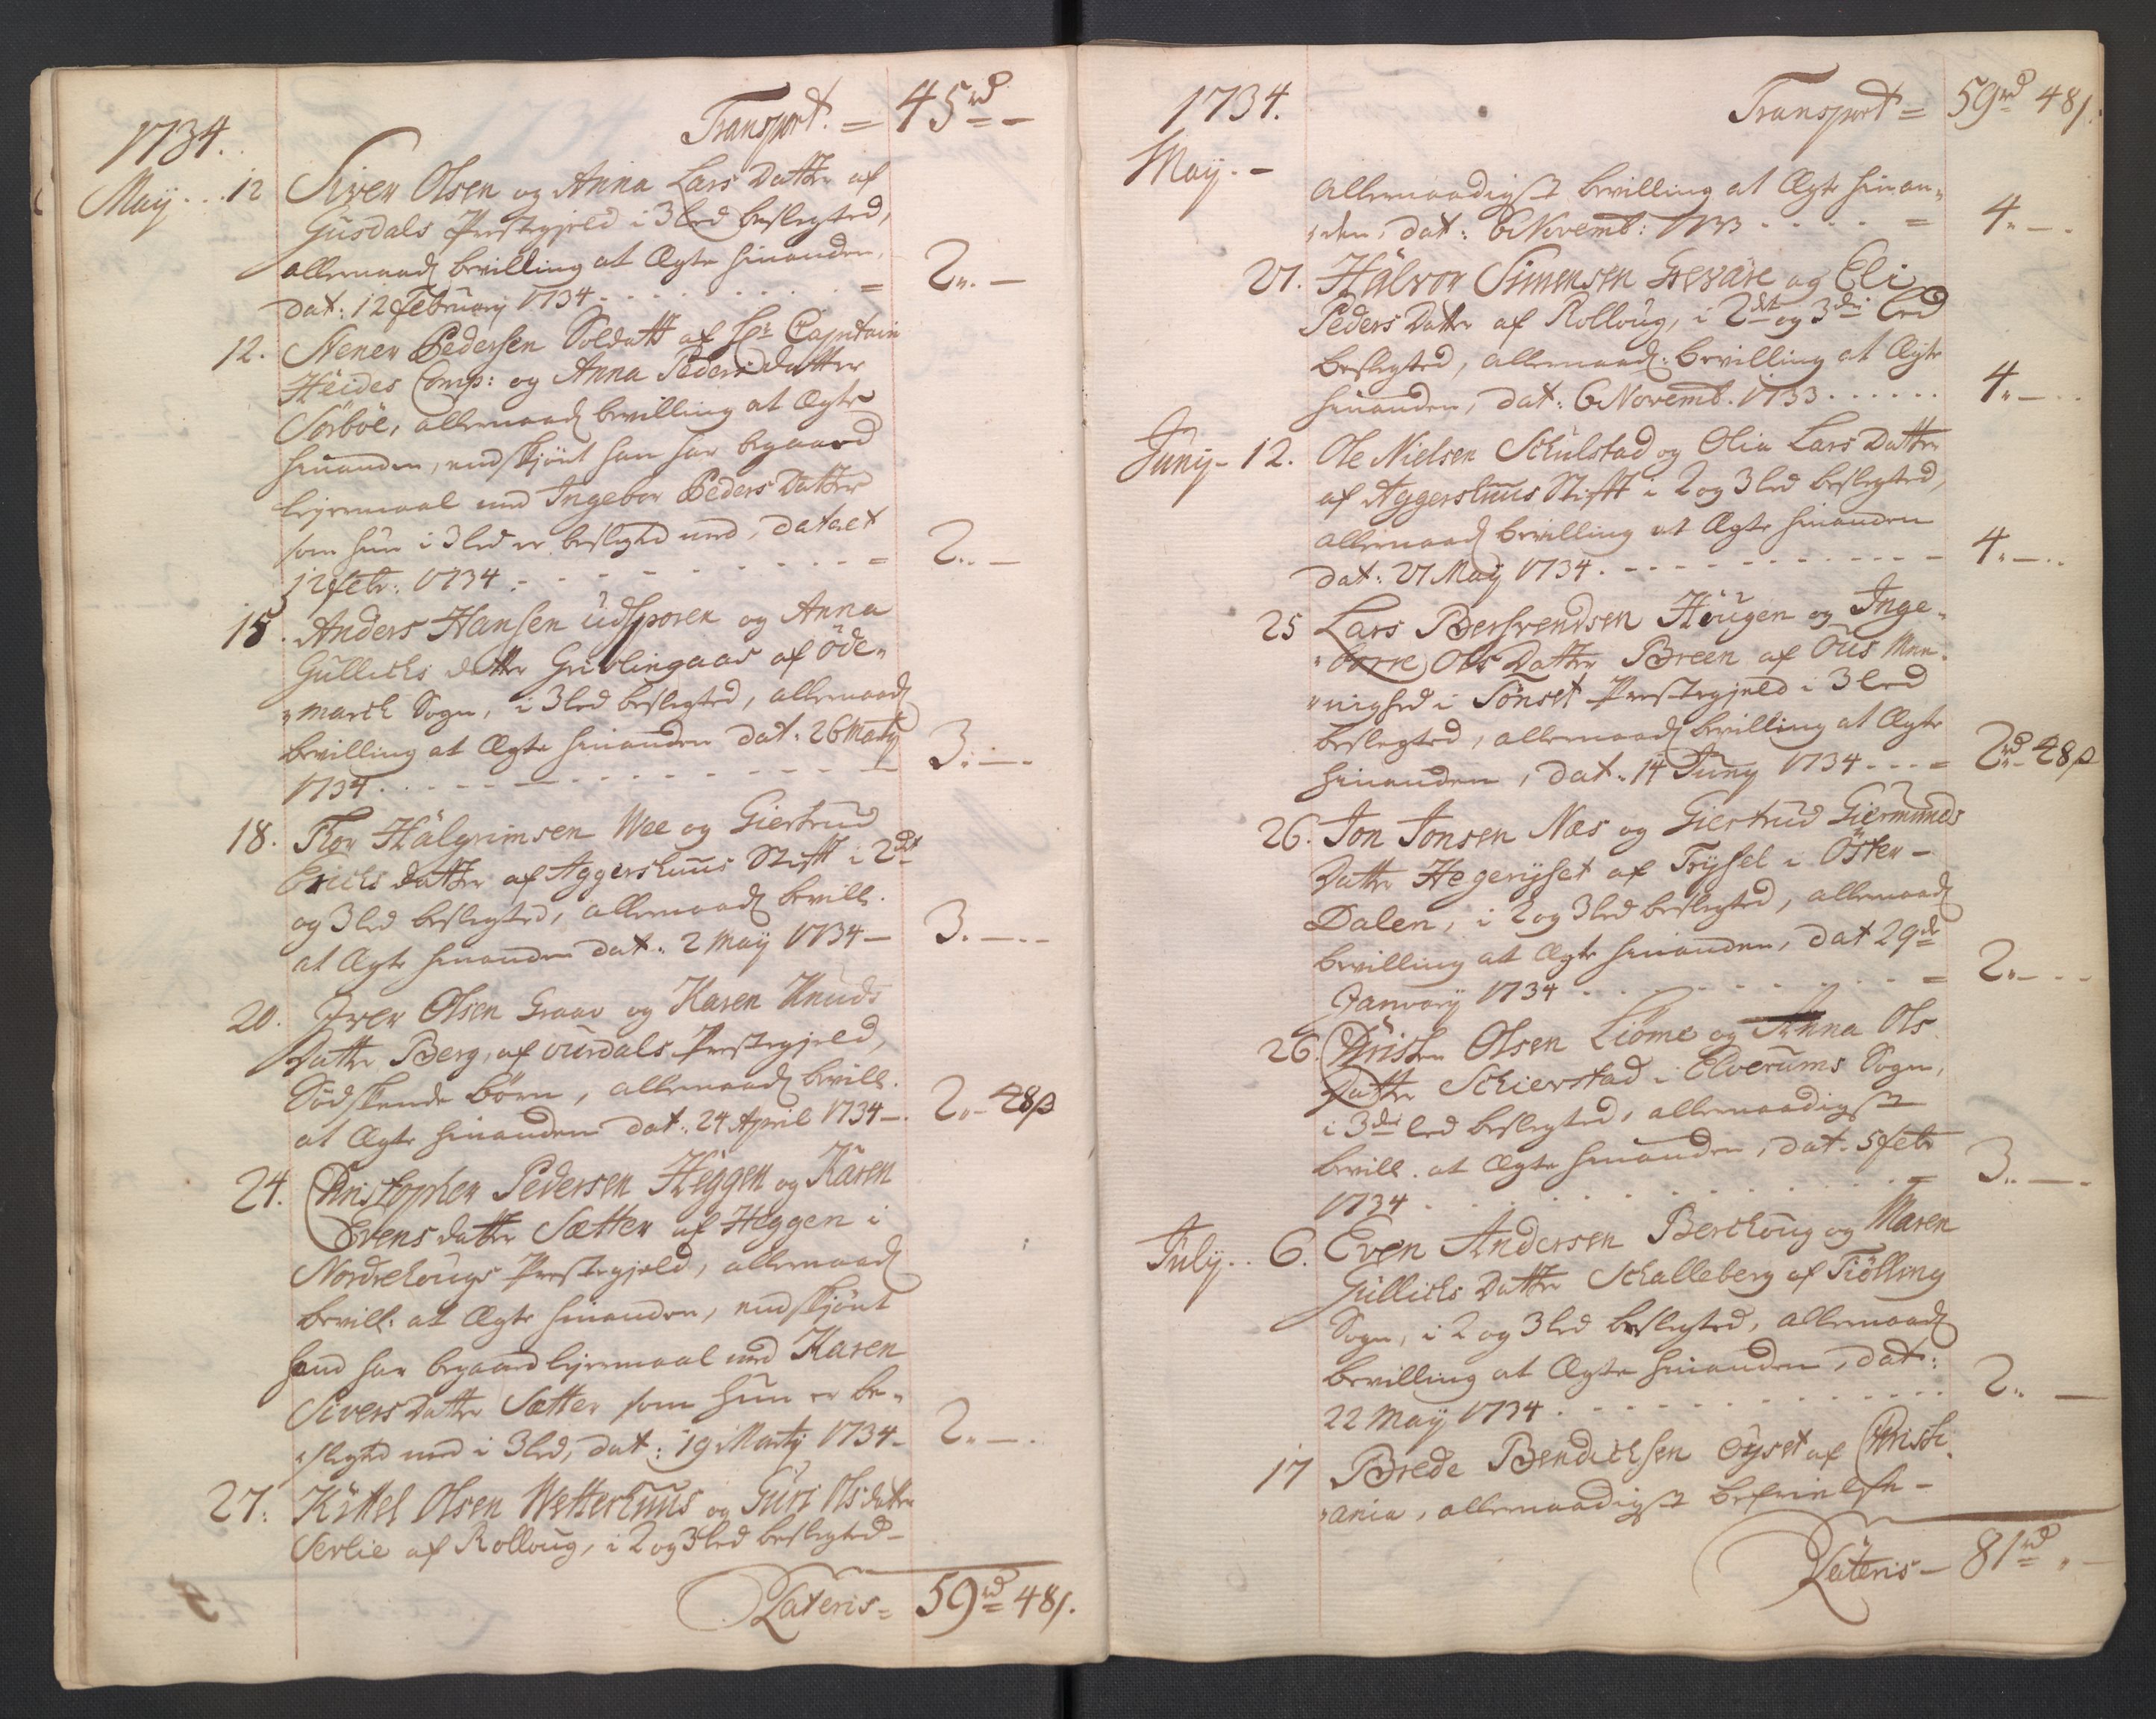 1734.
Transport. = 45 rd –
May... 12 Siver Olsen og Anna Lars Datter af
Gusdals Prestegjeld i 3 led beslegted,
allernaad: bevilling at Ægte hinanden,
dat: 12 February 1734 - - - = 2.. –
12. Stener Pedersen Soldatt af Hr Capitain
Heides Comp: og Anna Peders Datter
Sörböe, allernaad: bevilling at Ægte
hinanden, endskjönt han har begaaed
lejermaal med Ingebor Peders Datter
som hun i 3 led er beslegted med, dateret
12 febr: 1734 - - - = 2.. –
15. Anders Hansen Udsporen og Anna
Gullichs datter Grislingaas af Öde„
„march Sogn, i 3 led beslegted, allernaad:
bevilling at Ægte hinanden dat: 26 Marty
1734 - - - 3. –
18. Thor Halgrimsen Wee og Giertrud
Erichs datter af Aggershuus Stifft i 2det
og 3 led beslegted, allernaad: bevill.
at Ægte hinanden dat: 2 May 1734 – 3. –
20. Iver Olsen Graav og Karen Knuds
Datter Berg, af Ourdals Prestegjeld,
Södskende börn, allernaad: bevill.
at Ægte hinanden dat: 24 April 1734 – 2.. 48 ß
24. Christopher Pedersen Heggen og Karen
Evens datter Sætter af Heggen i
Nordrehougs Prestegjeld, allernaad:
bevill: at Ægte hinanden, endskjönt
hand har begaaed lejermaal med Karen
Sivers Datter Sætter som hun er be„
„slegted med i 3 led, dat: 19 Marty 1734 – 2.. –
27. Kittel Olsen Wetterhuus og Guri Ols datter
Serlie af Rolloug, i 2 og 3 led beslegted –
Lateris = 59 rd 48 s.
1734.
Transport = 59 rd 48 s.
May. –
allernaadigst bevilling at Ægte hinan„
„den, dat: 6 Novemb: 1733 - - - = 4.. –
27. Halvor Simensen Grevare og Eli
Peders Datter af Rolloug, i 2det og 3die led
beslegted, allernaad: bevilling at Ægte
hinanden, dat: 6 Novemb. 1733 ...... 4.. –
Juny – 12. Ole Nielsen Schulstad og Olia Lars Datter
af Aggershuus Stifft i 2 og 3 led beslegted,
allernaad: bevilling at Ægte hinanden
dat: 27 May 1734 . - - - 4.. –
25 Lars Berfvendsen Höugen og Inge„
„borre Ols Datter Breen af Öus Men„
„nighed i Tönset Prestegjeld i 3 led
beslegted, allernaad: bevilling at Ægte
hinanden, dat: 14 Juny 1734 - - - = 2 rd 48 ß
26. Jon Jonsen Næs og Giertrud Giermunds
Datter Hegerijset af Trysel i Öster –
Dalen, i 2 og 3 led beslegted, allernaad:
bevilling at Ægte hinanden, dat 29de
January 1734 - - - = 2.. –
26. Christen Olsen Liöme og Anna Ols
Datter Schierstad i Elverums Sogn,
i 3die led beslegted, allernaadigst
bevill. at Ægte hinanden, dat: 5 febr
1734 - - - 3.. –
July.. 6. Even Andersen Berchoug og Maren
Gullichs Datter Schalleberg af Tiölling
Sogn, i 2 og 3 led beslegted, allernaad:
bevilling at Ægte hinanden, dat:
22 May 1734 . - - - 2.. –
17 Brede Bendichsen Öyset af Christi„
„ania, allernaadigst befrielse –
Lateris – 81 rd „ –